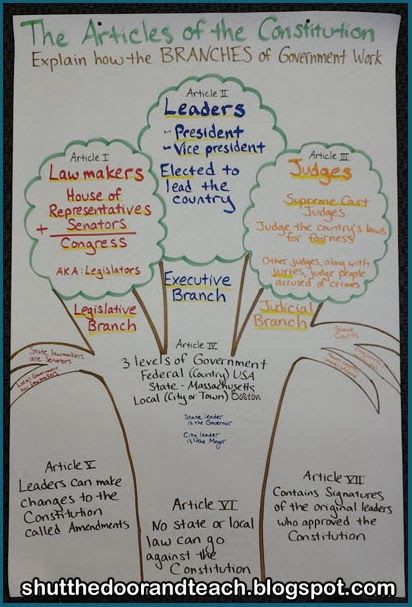 The Articles of the Constitution
Explain how the BRANCHES of Government Work
Article I
Lawmakers
House of
Representatives
+ Senators
Congress
AKA: Legislators
Legislative
Branch
Article II
Leaders
- President
- Vice president
Elected to
lead the
country
Executive
Branch
Article III
Judges
Supreme Court
Judges
Judge the country's laws
for fairness!
Other judges, along with
juries, judge people
accused of crimes
Judicial
Branch
State lawmakers
are Senators
Local Government
State
Courts
Article IV
3 levels of Government
Federal (Country) USA
State - Massachusetts
Local (City or Town) Boston
State leader
is the Governor
City leader
is the Mayor
Article V
Leaders can make
changes to the
Constitution
called Amendments
Article VI
No state or local
law can go
against the
Constitution
Article VII
Contains Signatures
of the original leaders
who approved the
Constitution
shutthedoorandteach.blogspot.com